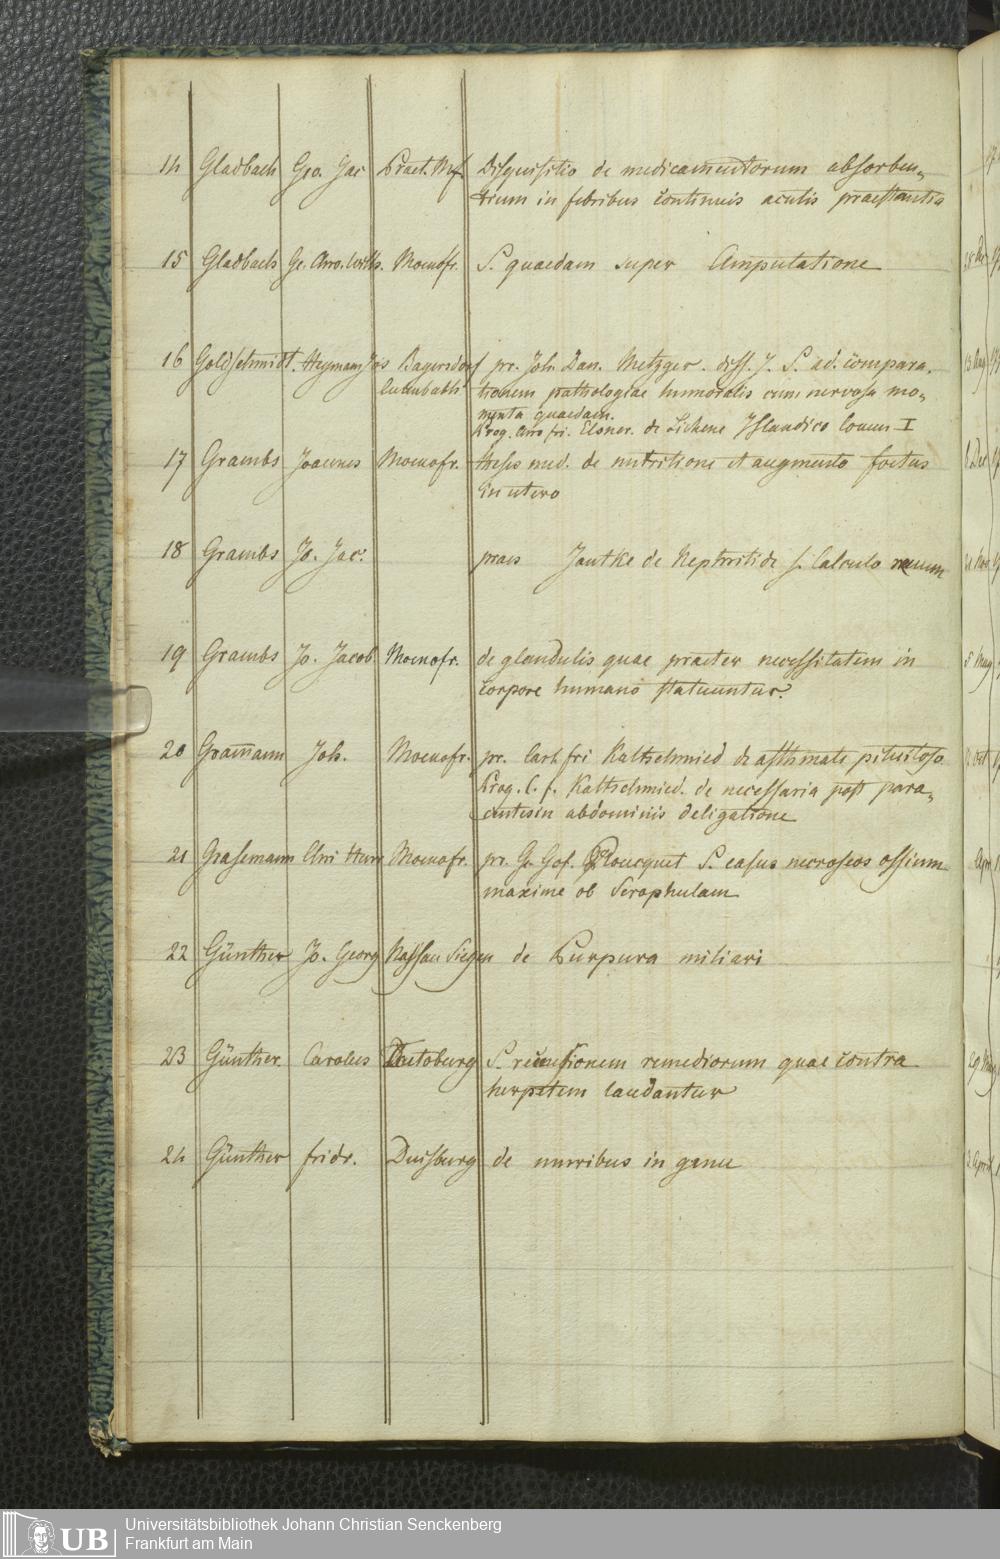 14 Gladbach Geo. Jac Pract. Mof. Disquisitio de medicamentorum absorben„
tium in febribus continuis acutis praestantia
15 Gladbach Ge. Chro. Wilh. Moenofr. S. quaedam super Amputatione
16 Goldschmidt Heymann Jos Bayersdorf pr. Joh. Dan. Metzger. diss. J. S. ad. compara„
tionem pathologiae humoralis cum nervosa mo„
menta quaedam.
Prog. Chro fri. Elsner. de Lichene Islandico Comm I
17 Grambs Joannes Moenofr. theses med. de nutritione et augmento foetus
in utero
18 Grambs Jo. Jac. praes Jantke de Nephritide s. Calculo renum
19 Grambs Jo. Jacob Moenofr. de glandulis quae praeter necessitatem in
corpore humano statuuntur.
20 Gramann Joh. Moenofr. pr. Carl fri Kaltschmied de asthmate pituitoso
Prog. C. f. Kaltschmied. de necessaria post para„
centesin abdominis deligatione
21 Grasemann Chri Henr Moenofr. pr. G. Gof. Ploucquet S. casus necroseos ossium
maxime ob Scrophulam
22 Günther Jo. Georg Nassau Siegen de Purpura miliari
23 Günther Carolus Teutoburg S. recensionem remediorum quae contra
herpetem laudantur
24 Günther fridr. Duisburg de muribus in genu
UB
Universitätsbibliothek Johann Christian Senckenberg
Frankfurt am Main